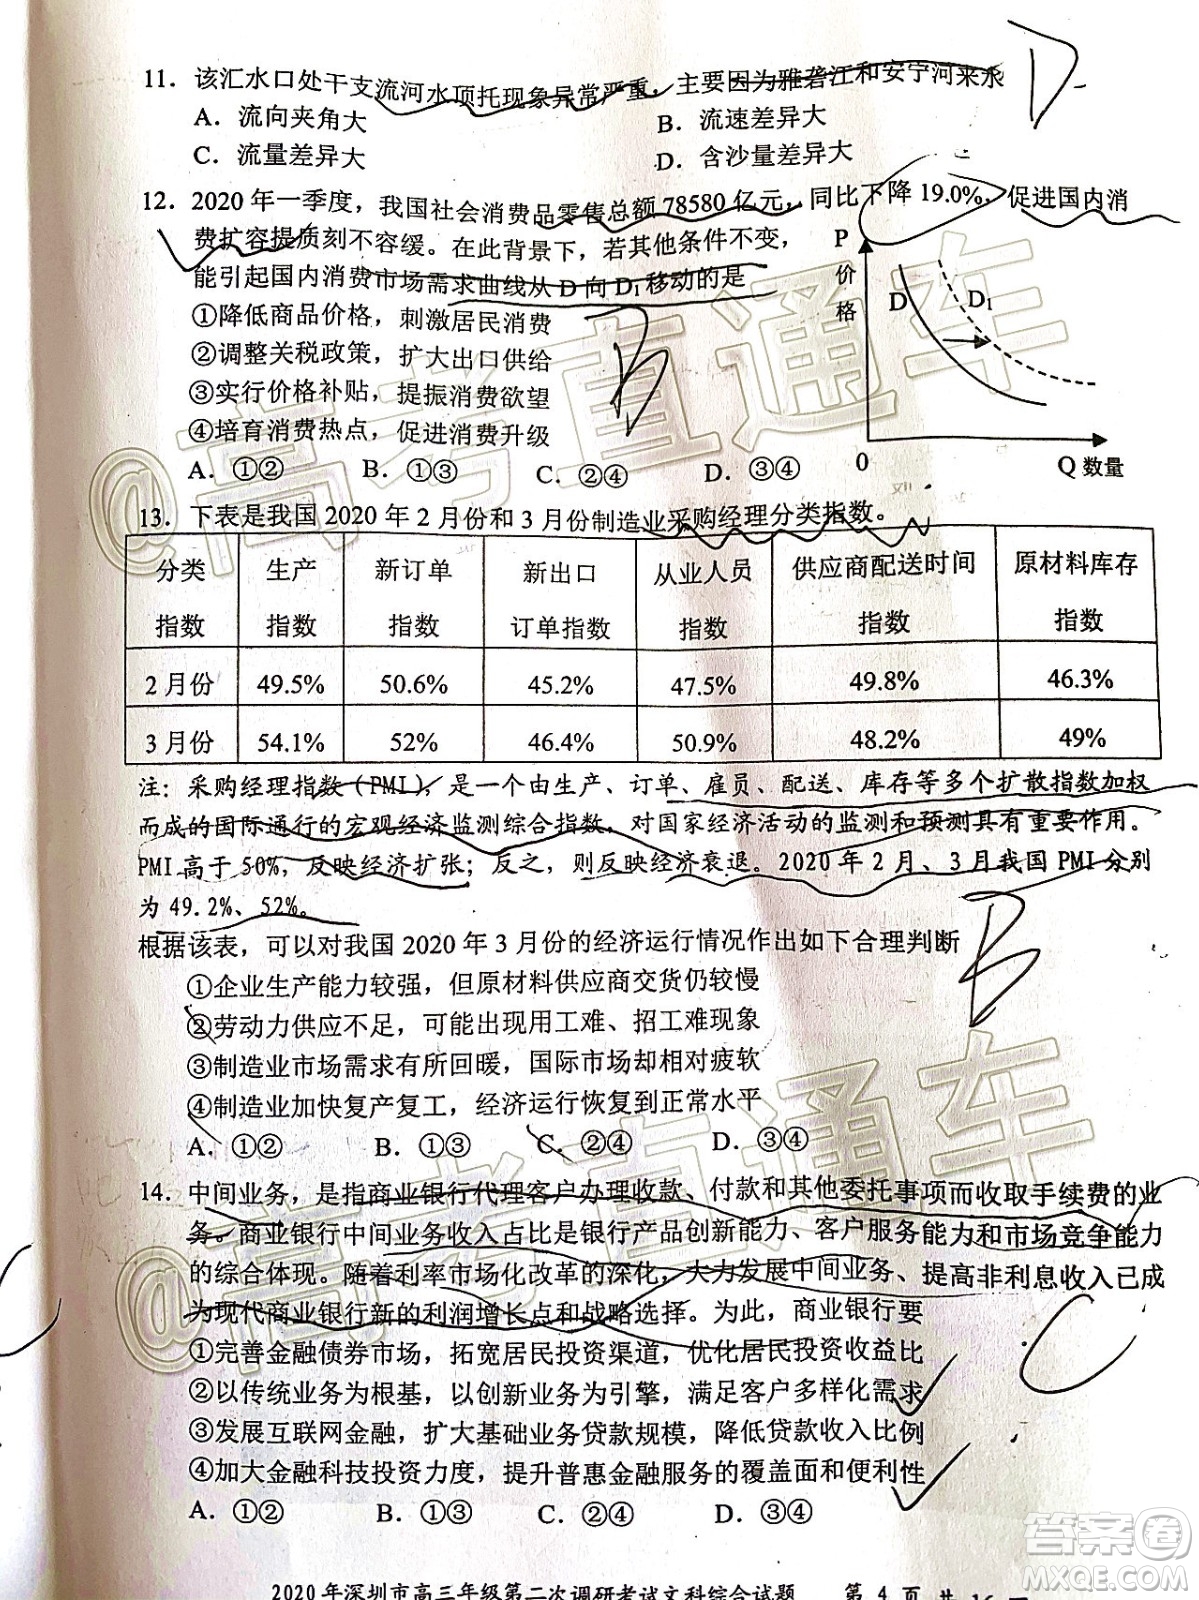 11. 该汇水口处干支流河水顶托现象异常严重，主要因为雅砻江和安宁河来水
A. 流向夹角大 B. 流速差异大
C. 流量差异大 D. 含沙量差异大
D
12. 2020年一季度，我国社会消费品零售总额78580亿元，同比下降19.0%，促进国内消
费扩容提质刻不容缓。在此背景下，若其他条件不变，
能引起国内消费市场需求曲线从D向D₁移动的是
①降低商品价格，刺激居民消费
②调整关税政策，扩大出口供给
③实行价格补贴，提振消费欲望
④培育消费热点，促进消费升级
A. ①② B. ①③ C. ②④ D. ③④
P
价
格
D D₁
0 Q数量
B
13. 下表是我国2020年2月份和3月份制造业采购经理分类指数。
分类 生产 新订单 新出口 从业人员 供应商配送时间 原材料库存
指数 指数 指数 订单指数 指数 指数 指数
2月份 49.5% 50.6% 45.2% 47.5% 49.8% 46.3%
3月份 54.1% 52% 46.4% 50.9% 48.2% 49%
注：采购经理指数(PMI)，是一个由生产、订单、雇员、配送、库存等多个扩散指数加权
而成的国际通行的宏观经济监测综合指数，对国家经济活动的监测和预测具有重要作用。
PMI高于50%，反映经济扩张；反之，则反映经济衰退。2020年2月、3月我国PMI分别
为49.2%、52%。
根据该表，可以对我国2020年3月份的经济运行情况作出如下合理判断
①企业生产能力较强，但原材料供应商交货仍较慢
②劳动力供应不足，可能出现用工难、招工难现象
③制造业市场需求有所回暖，国际市场却相对疲软
④制造业加快复产复工，经济运行恢复到正常水平
A. ①② B. ①③ C. ②④ D. ③④
B
14. 中间业务，是指商业银行代理客户办理收款、付款和其他委托事项而收取手续费的业
务。商业银行中间业务收入占比是银行产品创新能力、客户服务能力和市场竞争能力
的综合体现。随着利率市场化改革的深化，大力发展中间业务、提高非利息收入已成
为现代商业银行新的利润增长点和战略选择。为此，商业银行要
①完善金融债券市场，拓宽居民投资渠道，优化居民投资收益比
②以传统业务为根基，以创新业务为引擎，满足客户多样化需求
③发展互联网金融，扩大基础业务贷款规模，降低贷款收入比例
④加大金融科技投资力度，提升普惠金融服务的覆盖面和便利性
A. ①② B. ①③ C. ②④ D. ③④
C
2020年深圳市高三年级第二次调研考试文科综合试题 第 4 页 共
@高考直通车
@高考直通车
答案圈
MXQE.COM